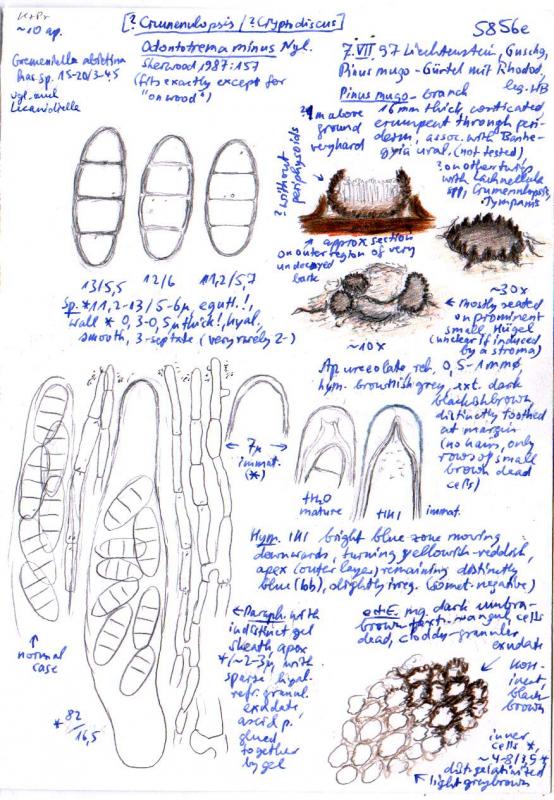 [? Crumenulopsis / ? Cryptodiscus]
5856e
K+Pr
~10 ap.
Odontotrema minus Nyl.
Sherwood 1987:157
(fits exactly except for
"on wood")
Gremeniella abietina
has sp. 15-20/3-4.5
vgl. auch
7.VII 97 Liechtenstein, Guschg,
Pinus mugo-Gürtel mit Rhodod.
leg. HB
Pinus mugo - branch
16 mm thick, corticated
erumpent through peri-
derm, assoc. with
ural. (not tested)
? on other twigs
with Lachnellula
spp, Crumenulopsis,
Tympanis
? 1m above
ground
very hard
? without
periphysoids
approx section
on outer region of very
undecayed
bark
~30x
mostly seated
on prominent
small Hügel
(unclear if induced
by a stroma)
~10x
13/5,5
12/6
11,2/5,7
Sp. *11,2-13/5-6µ, eguttl.!,
wall * 0,3-0,5µ thick!, hyal,
smooth, 3-septate (very rarely 2-)
Ap urceolate, 0,5-1mmø,
hym. brownish grey, ext. dark
blackish brown,
distinctly toothed
at margin
(no hairs, only
rows of small
brown dead
cells)
7µ
immat.
(*)
+H2O
mature
+IKI
immat.
Hym. IKI bright blue zone moving
downwards, turning yellowish-reddish,
apex (outer layer) remaining distinctly
blue (bb), slightly irreg. (somet. negative)
normal
case
* 82
/16,5
Paraph. with
indistinct gel
sheath, apex
+/~2-3µ, with
sparse hyal.
refr. granul.
exudate
asci p.
glued
together
by gel
ect E. mg. dark umbra-
brown text. cells
dead, cloddy-granular
exudate
black
brown
inner
cells *,
~4-8/3,5 *
dist. gelatinized
light greybrown